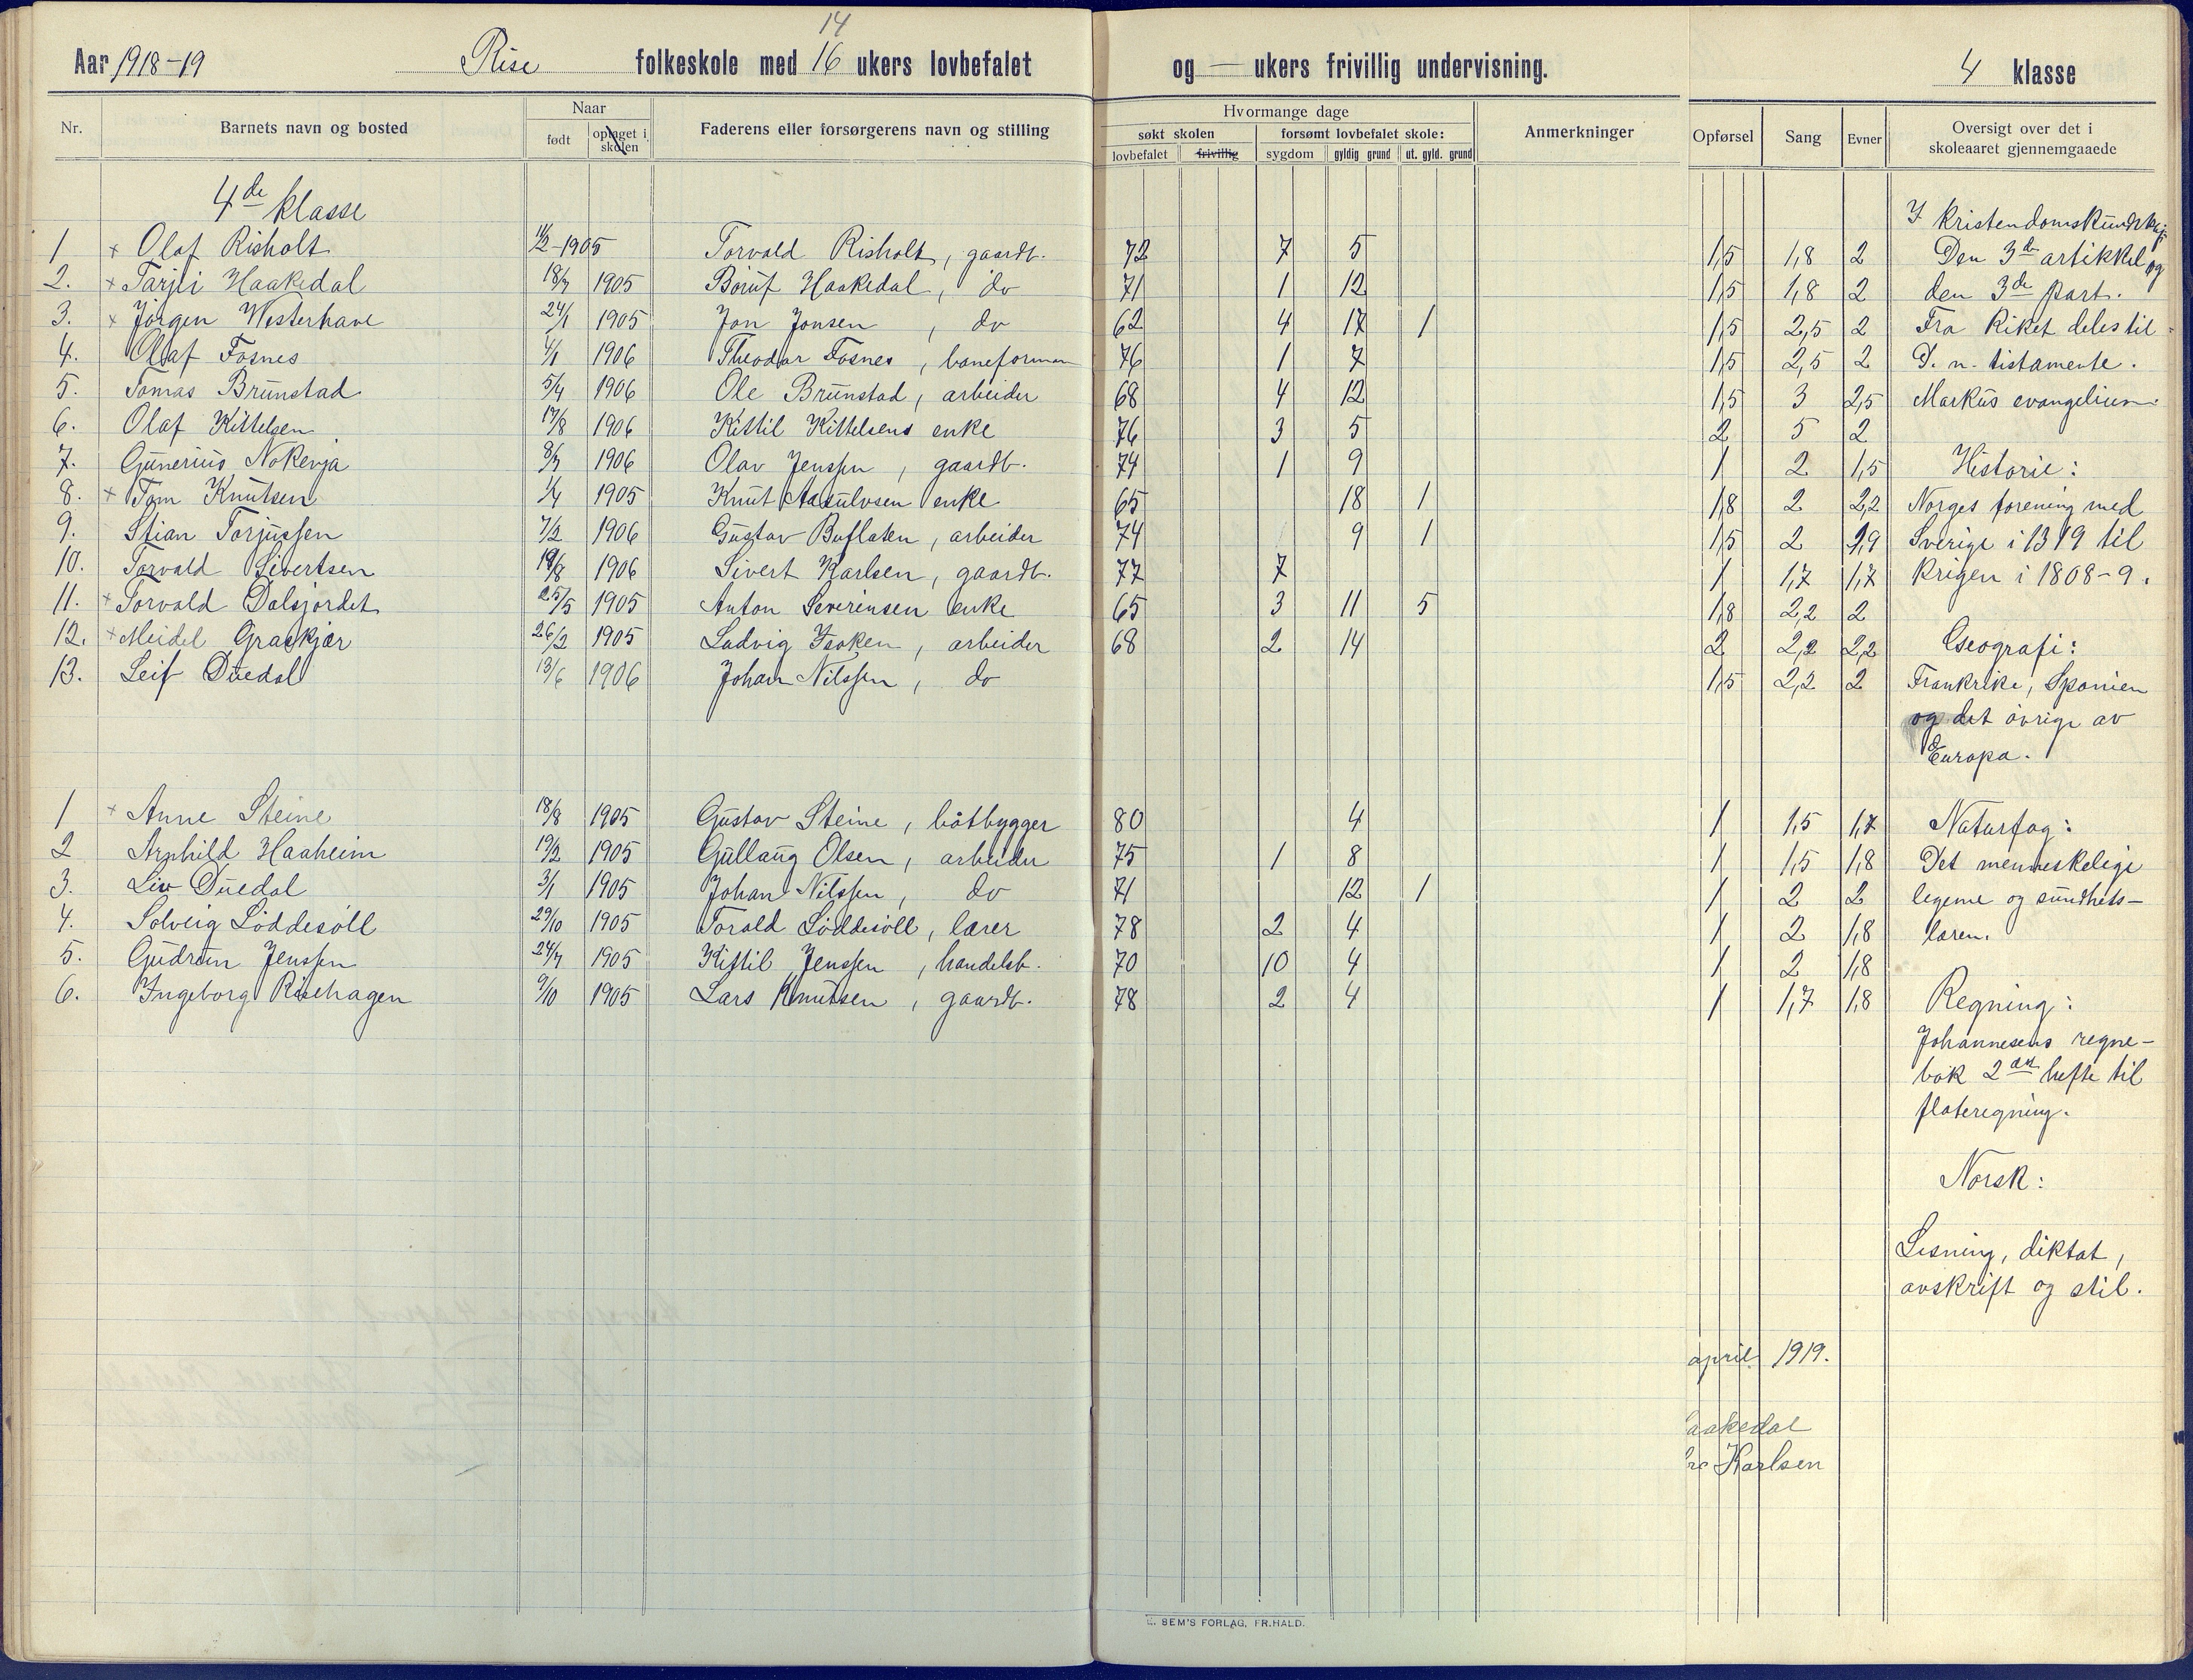 14
Aar 1918-19 Rise folkeskole med 16 ukers lovbefalet og — ukers frivillig undervisning. 4 klasse
Nr. Barnets navn og bosted Naar født optaget i skolen Faderens eller forsørgerens navn og stilling Hvormange dage søkt skolen lovbefalet frivillig forsømt lovbefalet skole: sygdom gyldig grund ut. gyld. grund Anmerkninger Opførsel Sang Evner Oversigt over det i skoleaaret gjennemgaaede
4de klasse
1 × Olaf Risholt 11/2-1905 Torvald Risholt, gaardb. 72 7 5 1,5 1,8 2
2. × Tarjei Haakedal 18/7 1905 Børuf Haakedal, do 71 1 12 1,5 1,8 2
3. × Jørgen Westerhave 24/1 1905 Jon Jonsen, do 62 4 17 1 1,5 2,5 2
4. Olaf Fosnes 4/1 1906 Theodor Fosnes, baneforman 76 1 7 1,5 2,5 2
5. Tomas Brunstad 5/4 1906 Ole Brunstad, arbeider 68 4 12 1,5 3 2,5
6. Olaf Kittelsen 17/8 1906 Kittil Kittelsens enke 76 3 5 2 5 2
7. Gunerius Nokenja 8/7 1906 Olav Jenssen, gaardb. 74 1 9 1 2 1,5
8. × Tom Knutsen 1/4 1905 Knut Aasulvsen enke 65 18 1 1,8 2 2,2
9. Stian Torjussen 7/2 1906 Gustav Buflaten, arbeider 74 9 1 1,5 2 1,9
10. Torvald Sivertsen 19/8 1906 Sivert Karlsen, gaardb. 77 7 1 1,7 1,7
11. × Torvald Dalsjordet 25/5 1905 Anton Severinsen enke 65 3 11 5 1,8 2,2 2
12. × Meidel Graskjær 26/2 1905 Ludvig Isaksen, arbeider 68 2 14 2 2,2 2,2
13. Leif Duedal 13/6 1906 Johan Nilssen, do 1,5 2,2 2
1 × Anne Steine 18/8 1905 Gustav Steine, båtbygger 80 4 1 1,5 1,7
2 Arnhild Haaheim 19/2 1905 Gullaug Olsen, arbeider 75 1 8 1 1,5 1,8
3. Liv Duedal 3/1 1905 Johan Nilssen, do 71 12 1 1 2 2
4. Solveig Løddesøll 29/10 1905 Torald Løddesøll, lærer 78 2 4 1 2 1,8
5. Gudrun Jenssen 24/7 1905 Kittil Jenssen, handelsb. 70 10 4 1 2 1,8
6. Ingeborg Risehagen 9/10 1905 Lars Knutsen, gaardb. 78 2 4 1 1,7 1,8
I kristendomskundskap:
Den 3de artikkel og
den 3de part.
Fra Riket deles til
D. n. testamente.
Markus evangelium.
Historie:
Norges forening med
Sverige i 1319 til
krigen i 1808-9.
Geografi:
Frankrike, Spanien
og det øvrige av
Europa.
Naturfag:
Det menneskelige
legeme og sundhets-
læren.
Regning:
Johannesens regne-
bok 2det hefte til
flateregning.
Norsk:
Lesning, diktat,
avskrift og stil.
april 1919.
aakedal
Karlsen
E. SEM'S FORLAG, FR.HALD.